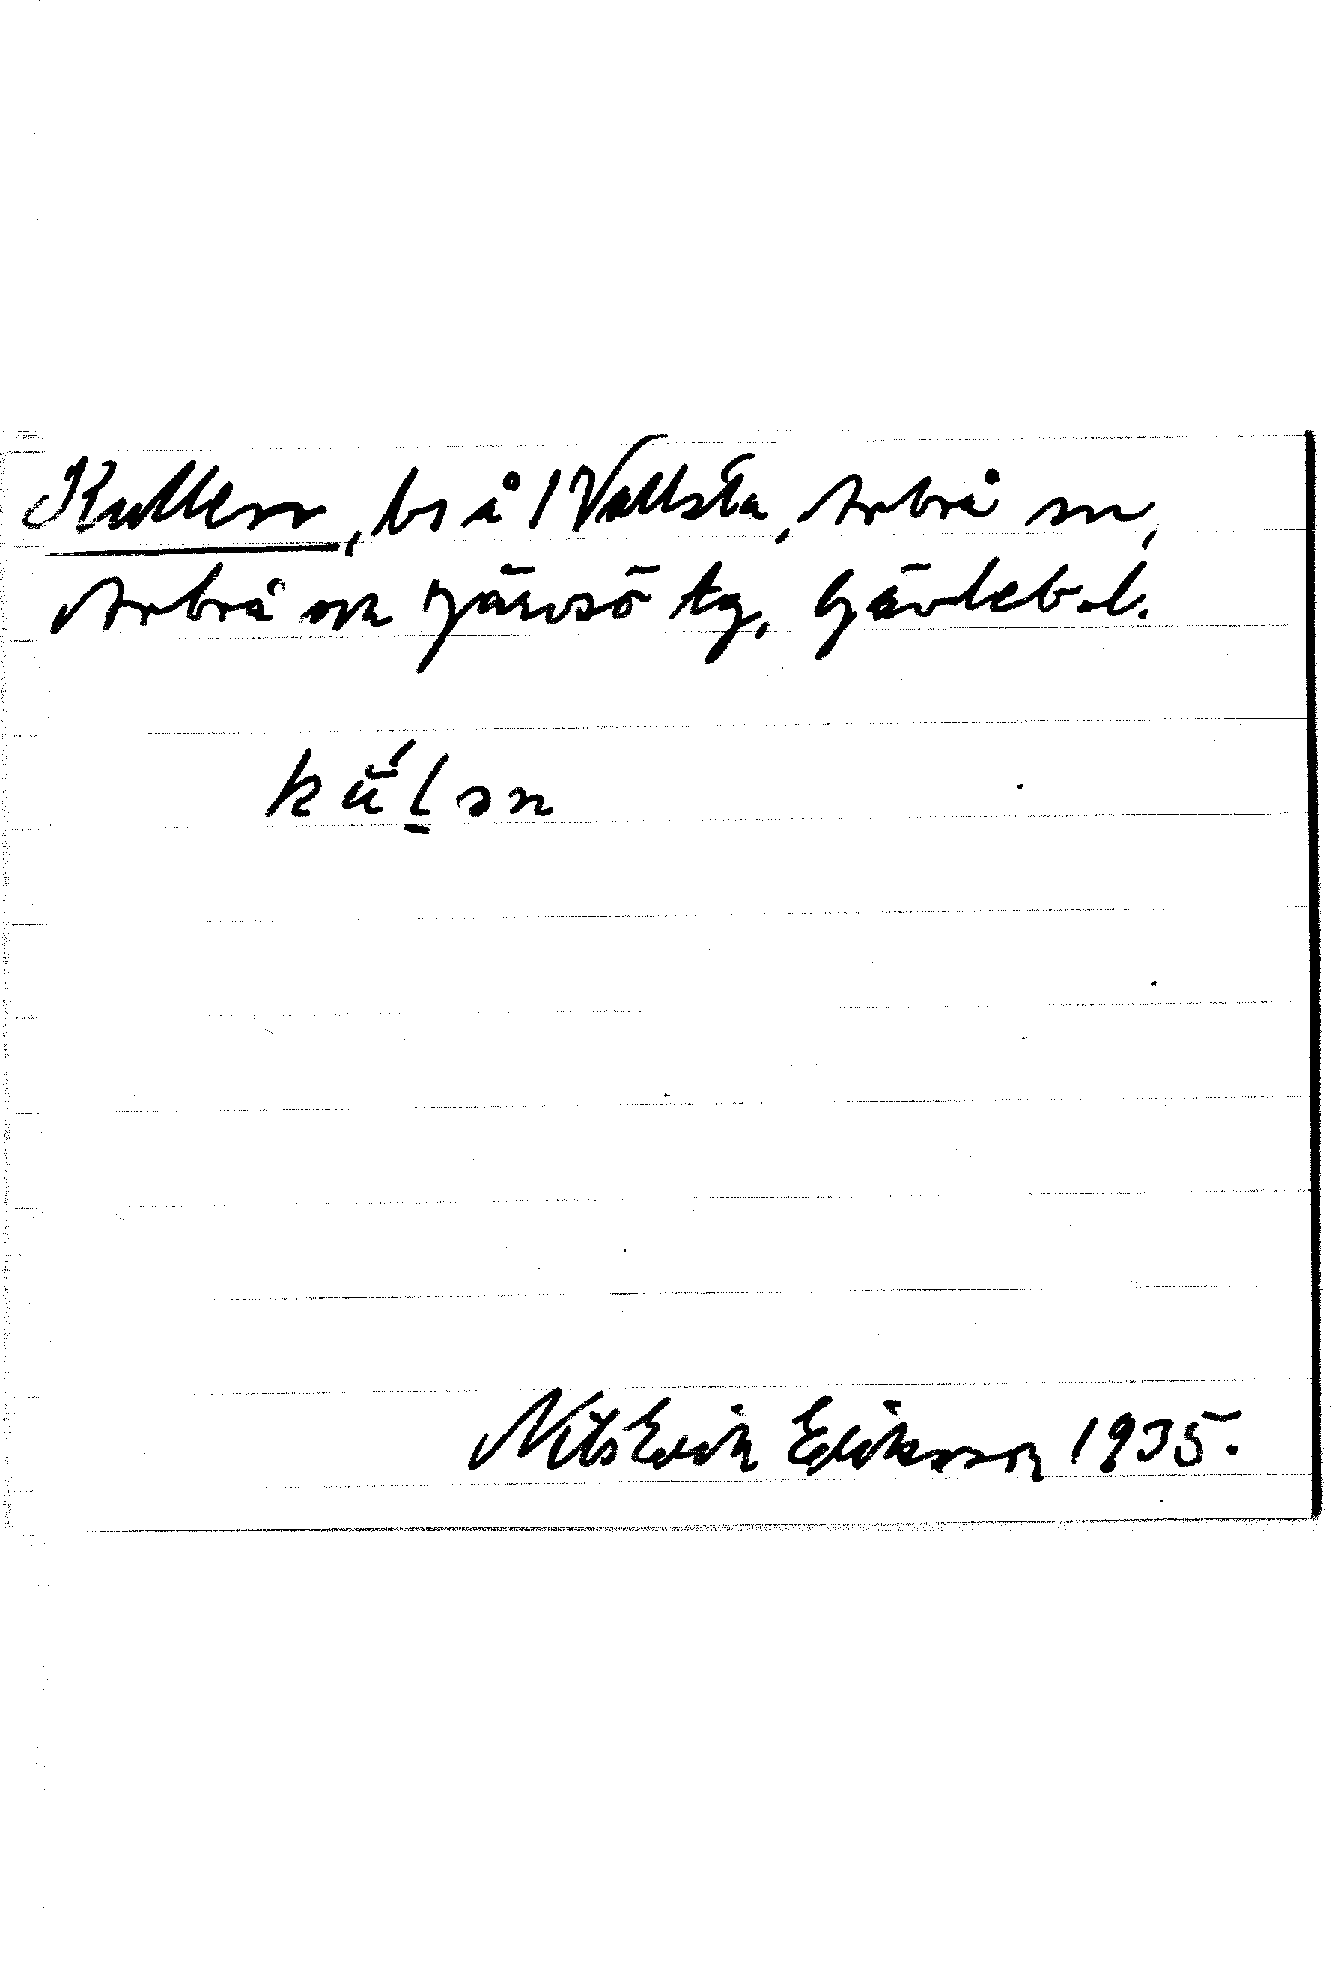 Kullen, bs å 1 Vallsta, Arbrå sn,
Arbrå ok Järvsö tg, Gävleb. l.
kŭ́l̠ən
Nils Erik Eriksson 1935.